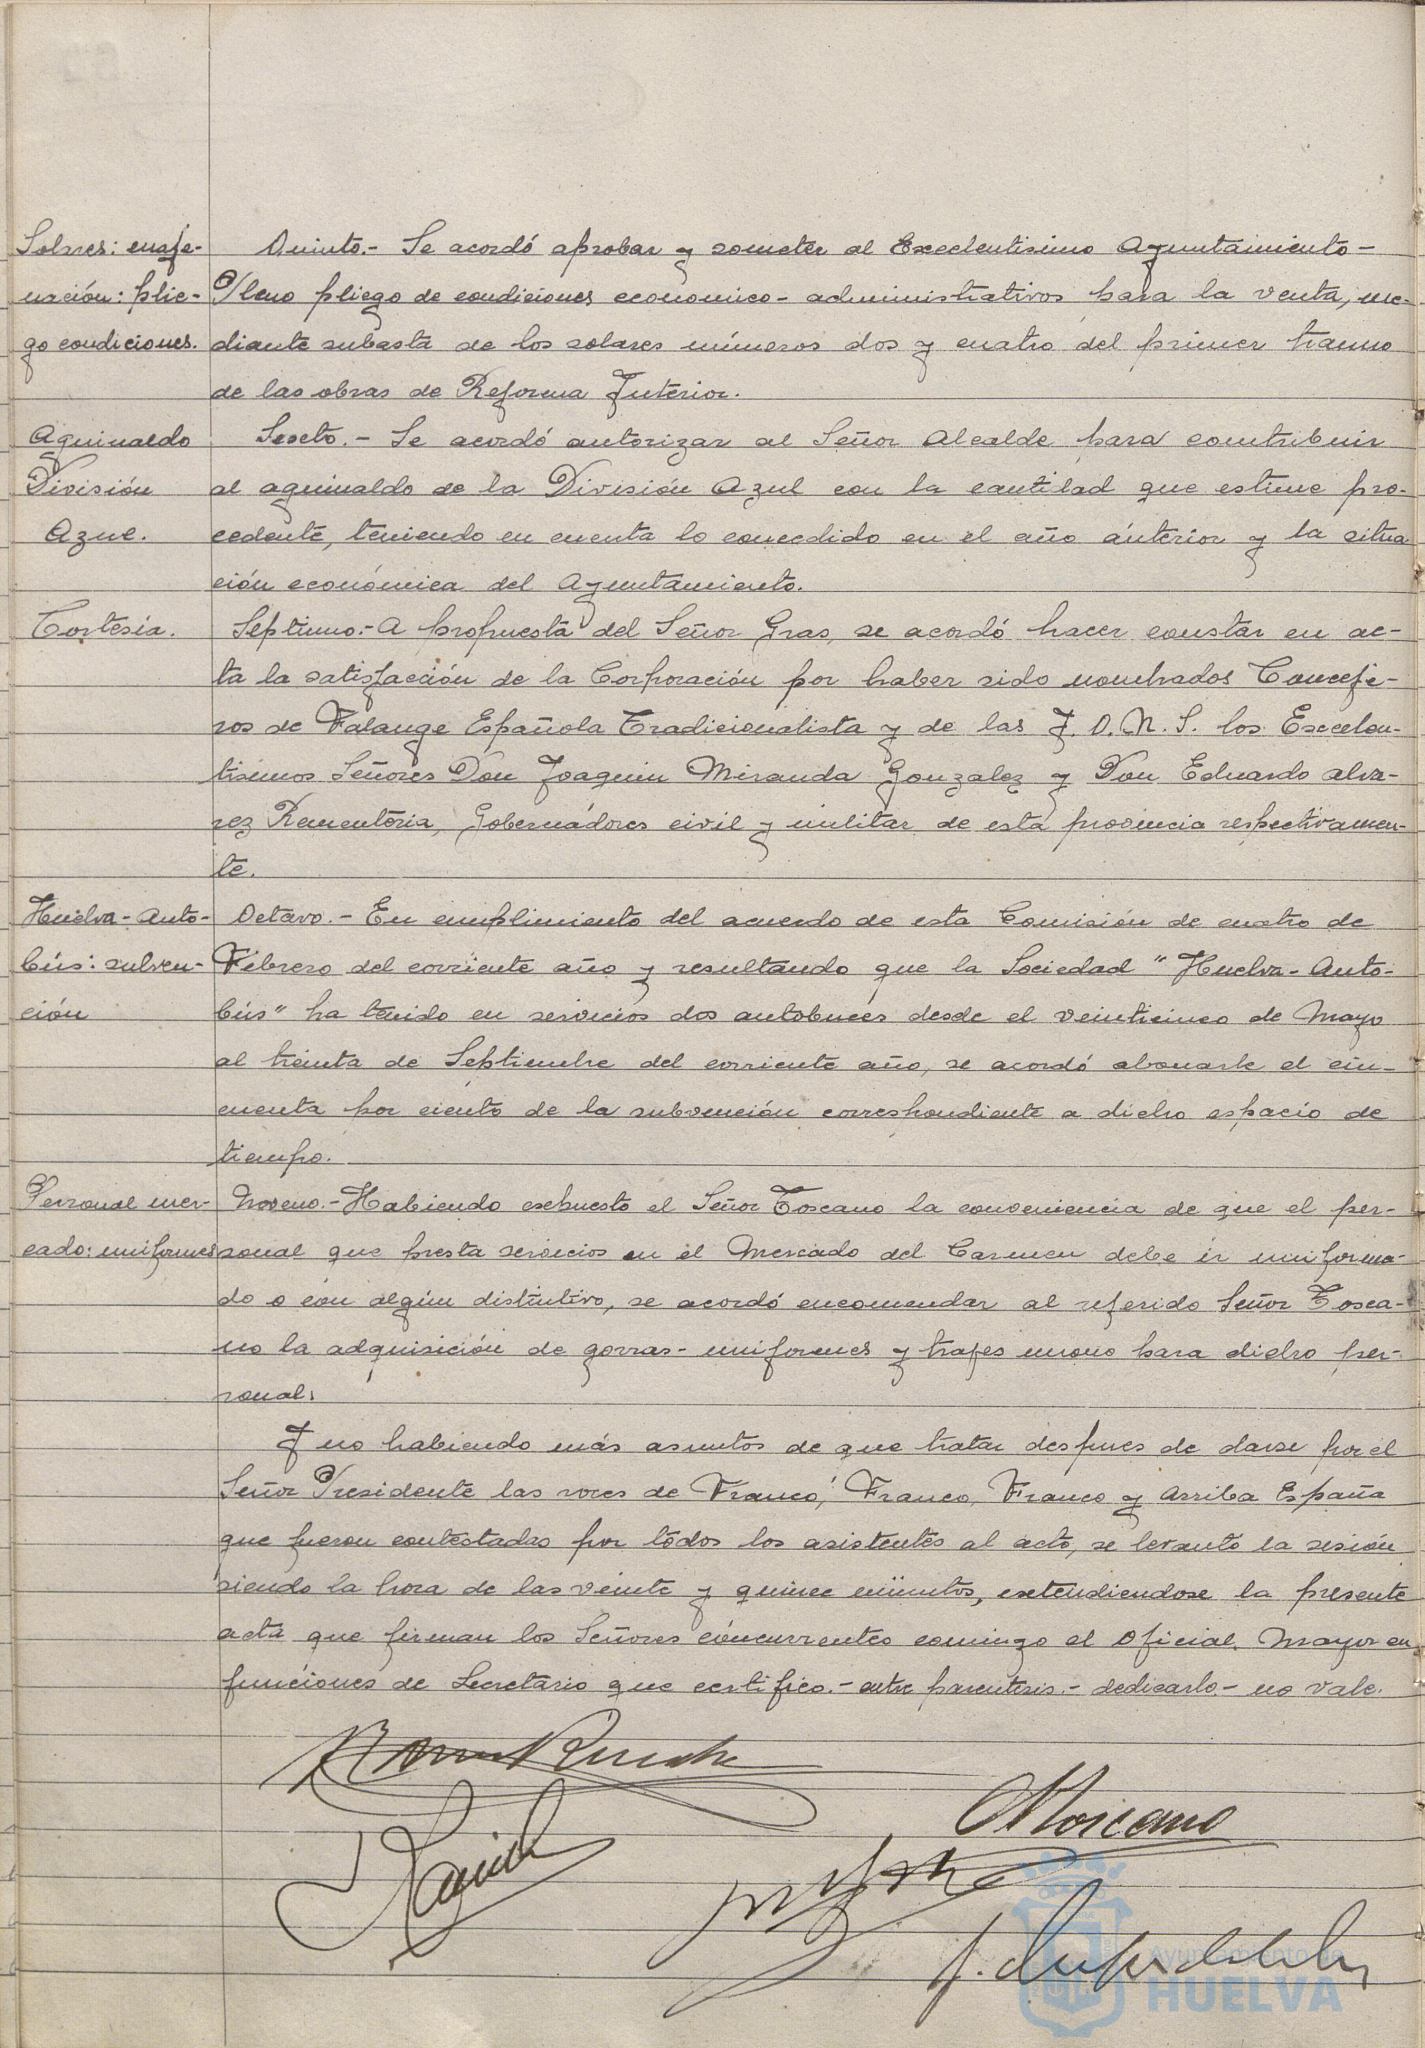 Solares: enaje-
nación: plie-
go condiciones.
Quinto.- Se acordó aprobar y someter al Excelentisimo Ayuntamiento-
Pleno pliego de condiciones economico-administrativos para la venta, me-
diante subasta de los solares números dos y cuatro del primer tramo
de las obras de Reforma Interior.
Aguinaldo
División
Azul.
Sexto.- Se acordó autorizar al Señor Alcalde para contribuir
al aguinaldo de la División Azul con la cantidad que estime pro-
cedente, teniendo en cuenta lo concedido en el año anterior y la situa
ción económica del Ayuntamiento.
Cortesía.
Septimo.- A propuesta del Señor Gras, se acordó hacer constar en ac-
ta la satisfacción de la Corporación por haber sido nombrados Conseje-
ros de Falange Española Tradicionalista y de las J.O.N.S. los Excelen-
tisimos Señores Don Joaquin Miranda Gonzalez y Don Eduardo Alva-
rez Rementéria, Gobernadores civil y militar de esta provincia respectivamen-
te.
Huelva-Auto-
bús: subven-
ción
Octavo.- En cumplimiento del acuerdo de esta Comisión de cuatro de
Febrero del corriente año y resultando que la Sociedad "Huelva-Auto-
bús" ha tenido en servicios dos autobuces desde el veinticinco de Mayo
al treinta de Septiembre del corriente año, se acordó abonarle el cin-
cuenta por ciento de la subvención correspondiente a dicho espacio de
tiempo.
Personal mer-
cado: uniformes
Noveno.- Habiendo expuesto el Señor Toscano la conveniencia de que el per-
sonal que presta servicios en el Mercado del Carmen debe ir uniforma-
do o con algún distintivo, se acordó encomendar al referido Señor Tosca-
no la adquisición de gorras-uniformes y trajes mono para dicho per-
sonal.
Y no habiendo más asuntos de que tratar despues de darse por el
Señor Presidente las voces de Franco, Franco, Franco y Arriba España
que fueron contestadas por todos los asistentes al acto, se levantó la sesión
siendo la hora de las veinte y quince minutos, extendiendose la presente
acta que firman los Señores concurrentes comingo el Oficial Mayor en
funciones de Secretario que certifico.- entre parentesis.- dedicarlo.- no vale.
Ayuntamiento de
HUELVA